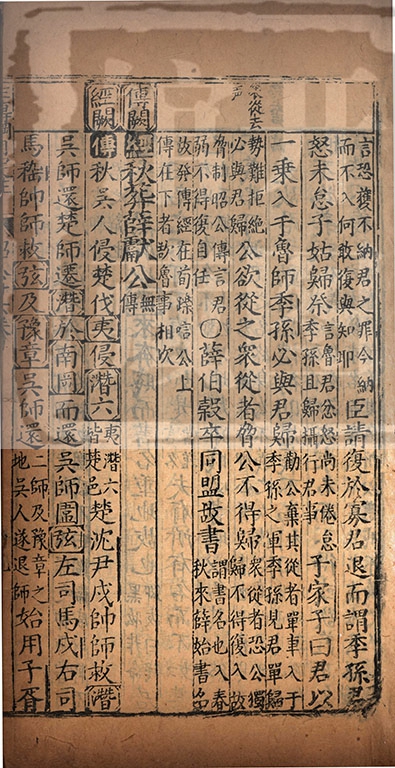 言恐獲不納君之罪今納而不入何敢復與知耶臣請復於寡君退而謂季孫君
怒未怠子姑歸祭言魯君忿怒尚未倦怠季孫且歸攝行君事子家子曰君以
一乗入于魯師季孫必與君歸勸公棄其從者單車入于季孫之軍季孫見君單歸
勢難拒絶必與君歸公欲從之衆從者脅公不得歸衆從者恐公獨歸不得復入故
脅制昭公傳言君弱不得復自任○薛伯穀卒同盟故書謂書名也入春秋來薛始書名
故發傳經在荀躒唁公上傳在下者欲魯事相次
傳闕
經秋葬薛獻公無傳
經闕
傳秋吳人侵楚伐夷侵潛六夷潛六皆楚邑楚沈尹戌帥師救潛
吳師還楚師遷潛於南岡而還吳師圍弦左司馬戌右司
馬稽帥師救弦及豫章吳師還二師及豫章之地吳人遂退師始用子胥